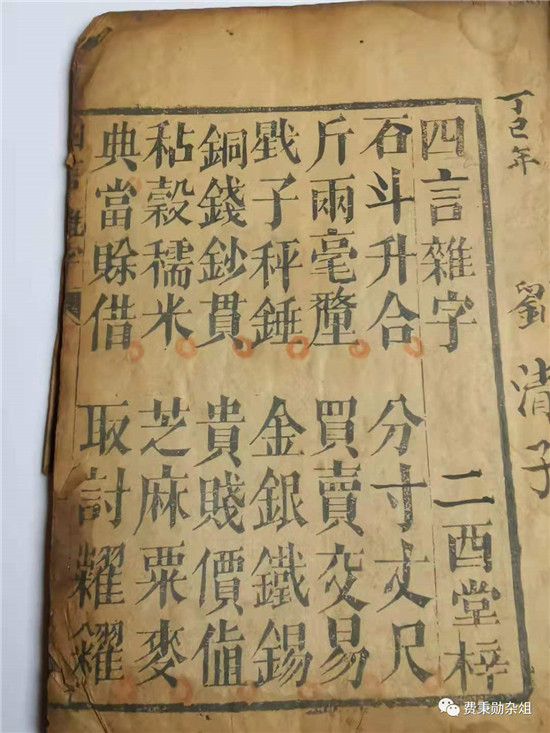 丁巳年 劉清子
四言雜字 二酉堂梓
石斗升合 分寸丈尺
斤兩毫釐 買賣交易
戥子秤錘 金銀鐵錫
銅錢鈔貫 貴賤價值
秥穀穤米 芝麻粟麥
典當賒借 取討糶糴
四言雜字
费秉勋杂俎